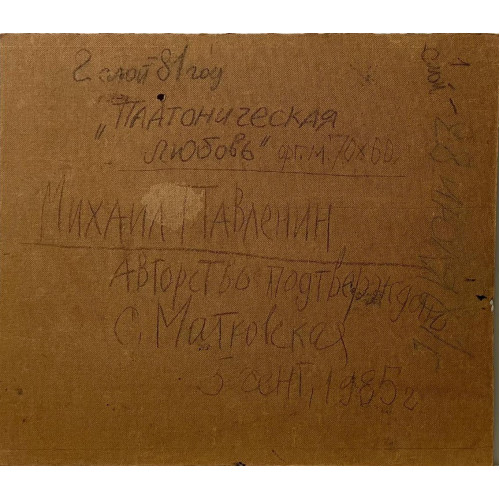 2 слой 81 год
„Платоническая
любовь" орг.м. 70х60.
Михаил Павленин
Авторство подтверждаю
С. Матковская
5 сент, 1985 г
1
слой - 28 июня